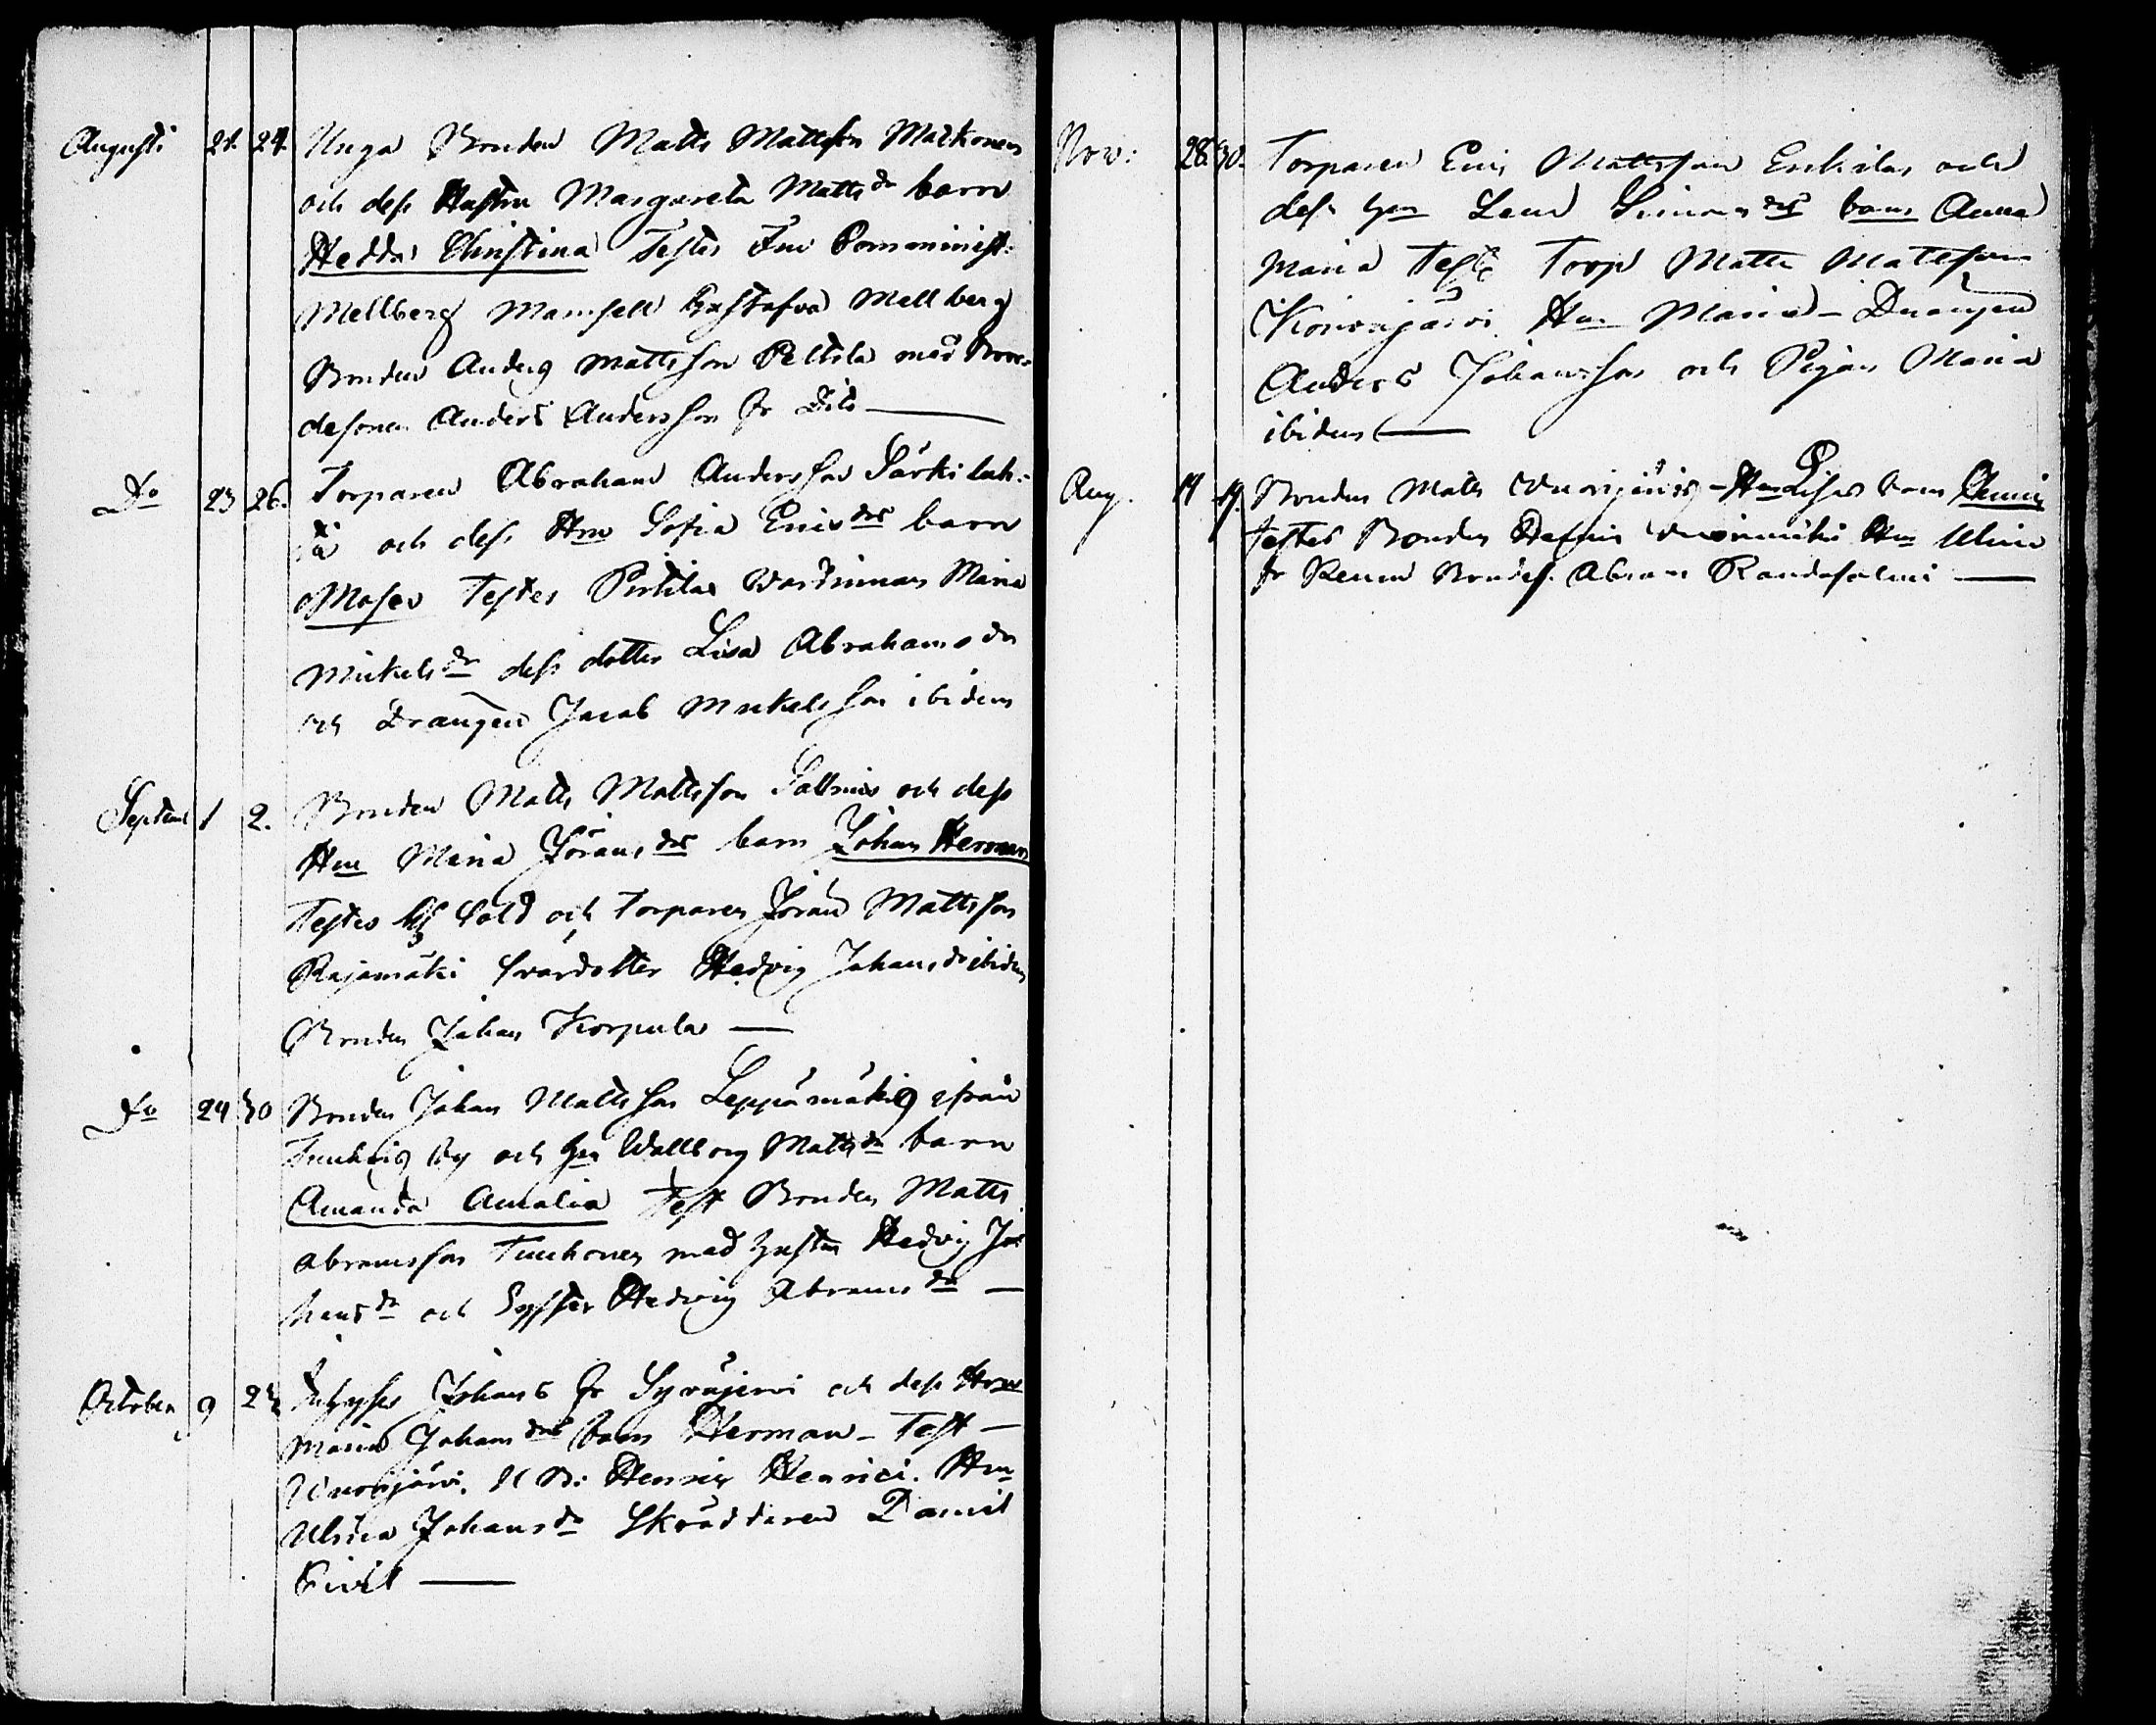 Augusti 21. 24. Unga Bonden Matts Mattsson Matkonens
och dess Hustru Margareta Matts dr barn
Hedda Christina Testes Fru Comminist:
Mellberg Mamsell Gustafva Mellberg
Bonden Anders Mattsson Peltola med Bon-
desonen Anders Andersson fr
Do 23 26. Torparen Abraham Andersson Särkilah-
och dess Hru Sofia Erics drs barn
Moses Testes Pirtilas Wärdinnan Maria
Mickels dr dess dotter Lisa Abrahams dr
och Drängen Jacob Mickelsson ibidem
Septemb 1 2. Bonden Matts Mattsson Sallmis och dess
Hru Maria Jörans drs barn Johan Herman
Testes Sold och Torparen Jöran Mattsson
Rajamäki Hedvig Johans dr ibidem
Bonden Johan Korpula
Do 24 30 Bonden Johan Mattsson Leppämäkis ifrån
by och Hu Wallborg Matts dr barn
Amanda Amalia Test Bonden Matts
Abramsson Tuuhonen med Hustru Hedvig Jo
hans dr och Syster Hedvig Abrams dr
October 9 Inhyses Johans fr Syväjervi och dess Hrus
Maria Johans drs barn Herman - Test -
Wuorijärvi. N B: Henric Henrici. Hru
Ulrica Johans dr Skräddaren Daniel
Civil
Nov: 28. 30. Torparen Eric Mattsson Erkilas och
dess Hus Lena Simons drs barn Anna
Maria Test: Torp Matts Mattsson
Koirajärvi Hu Maria - Drängen
Anders Johansson och Pigan Maria
ibidem
Aug. 14 19. Bonden Matts Wuorijärvis - Hus Lisas barn
testes Bonden Hu Ulrica
fr Bondes. Abram